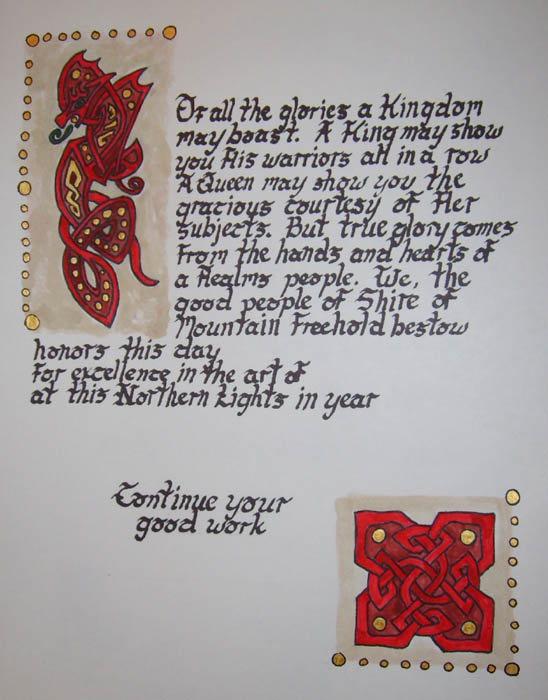 Of all the glories a Kingdom
may boast. A King may show
you His warriors all in a row
A Queen may show you the
gracious courtesy of Her
subjects. But true glory comes
from the hands and hearts of
a Realms people. We, the
good people of Shire of
Mountain Freehold bestow
honors this day
for excellence in the art of
at this Northern Lights in year
Continue your
good work